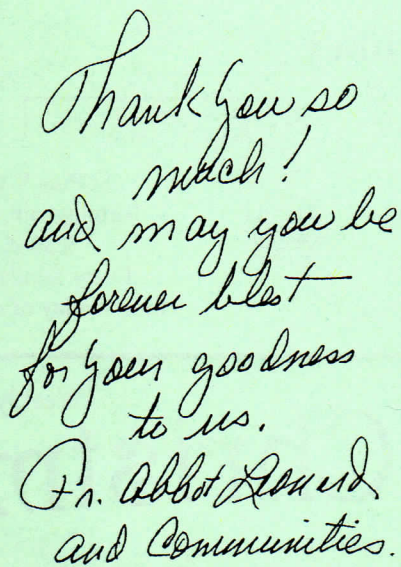 Thank you so
much!
and may you be
forever blest
for your goodness
to us.
Fr. Abbot Leonard
and Communities.